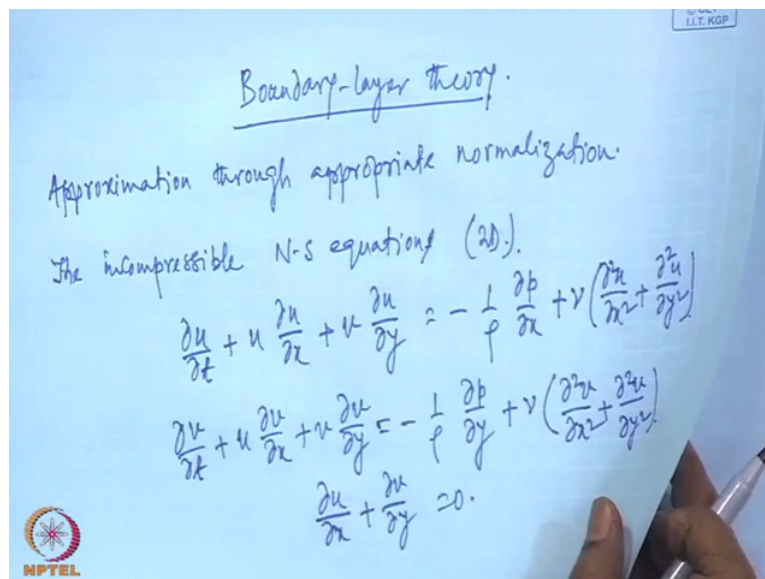 © CET
I.I.T. KGP
Boundary-layer theory.
Approximation through appropriate normalization.
The incompressible N-S equations (2D).
∂u/∂t + u ∂u/∂x + v ∂u/∂y = - 1/ρ ∂p/∂x + ν(∂²u/∂x² + ∂²u/∂y²)
∂v/∂t + u ∂v/∂x + v ∂v/∂y = - 1/ρ ∂p/∂y + ν(∂²v/∂x² + ∂²v/∂y²)
∂u/∂x + ∂v/∂y = 0.
NPTEL